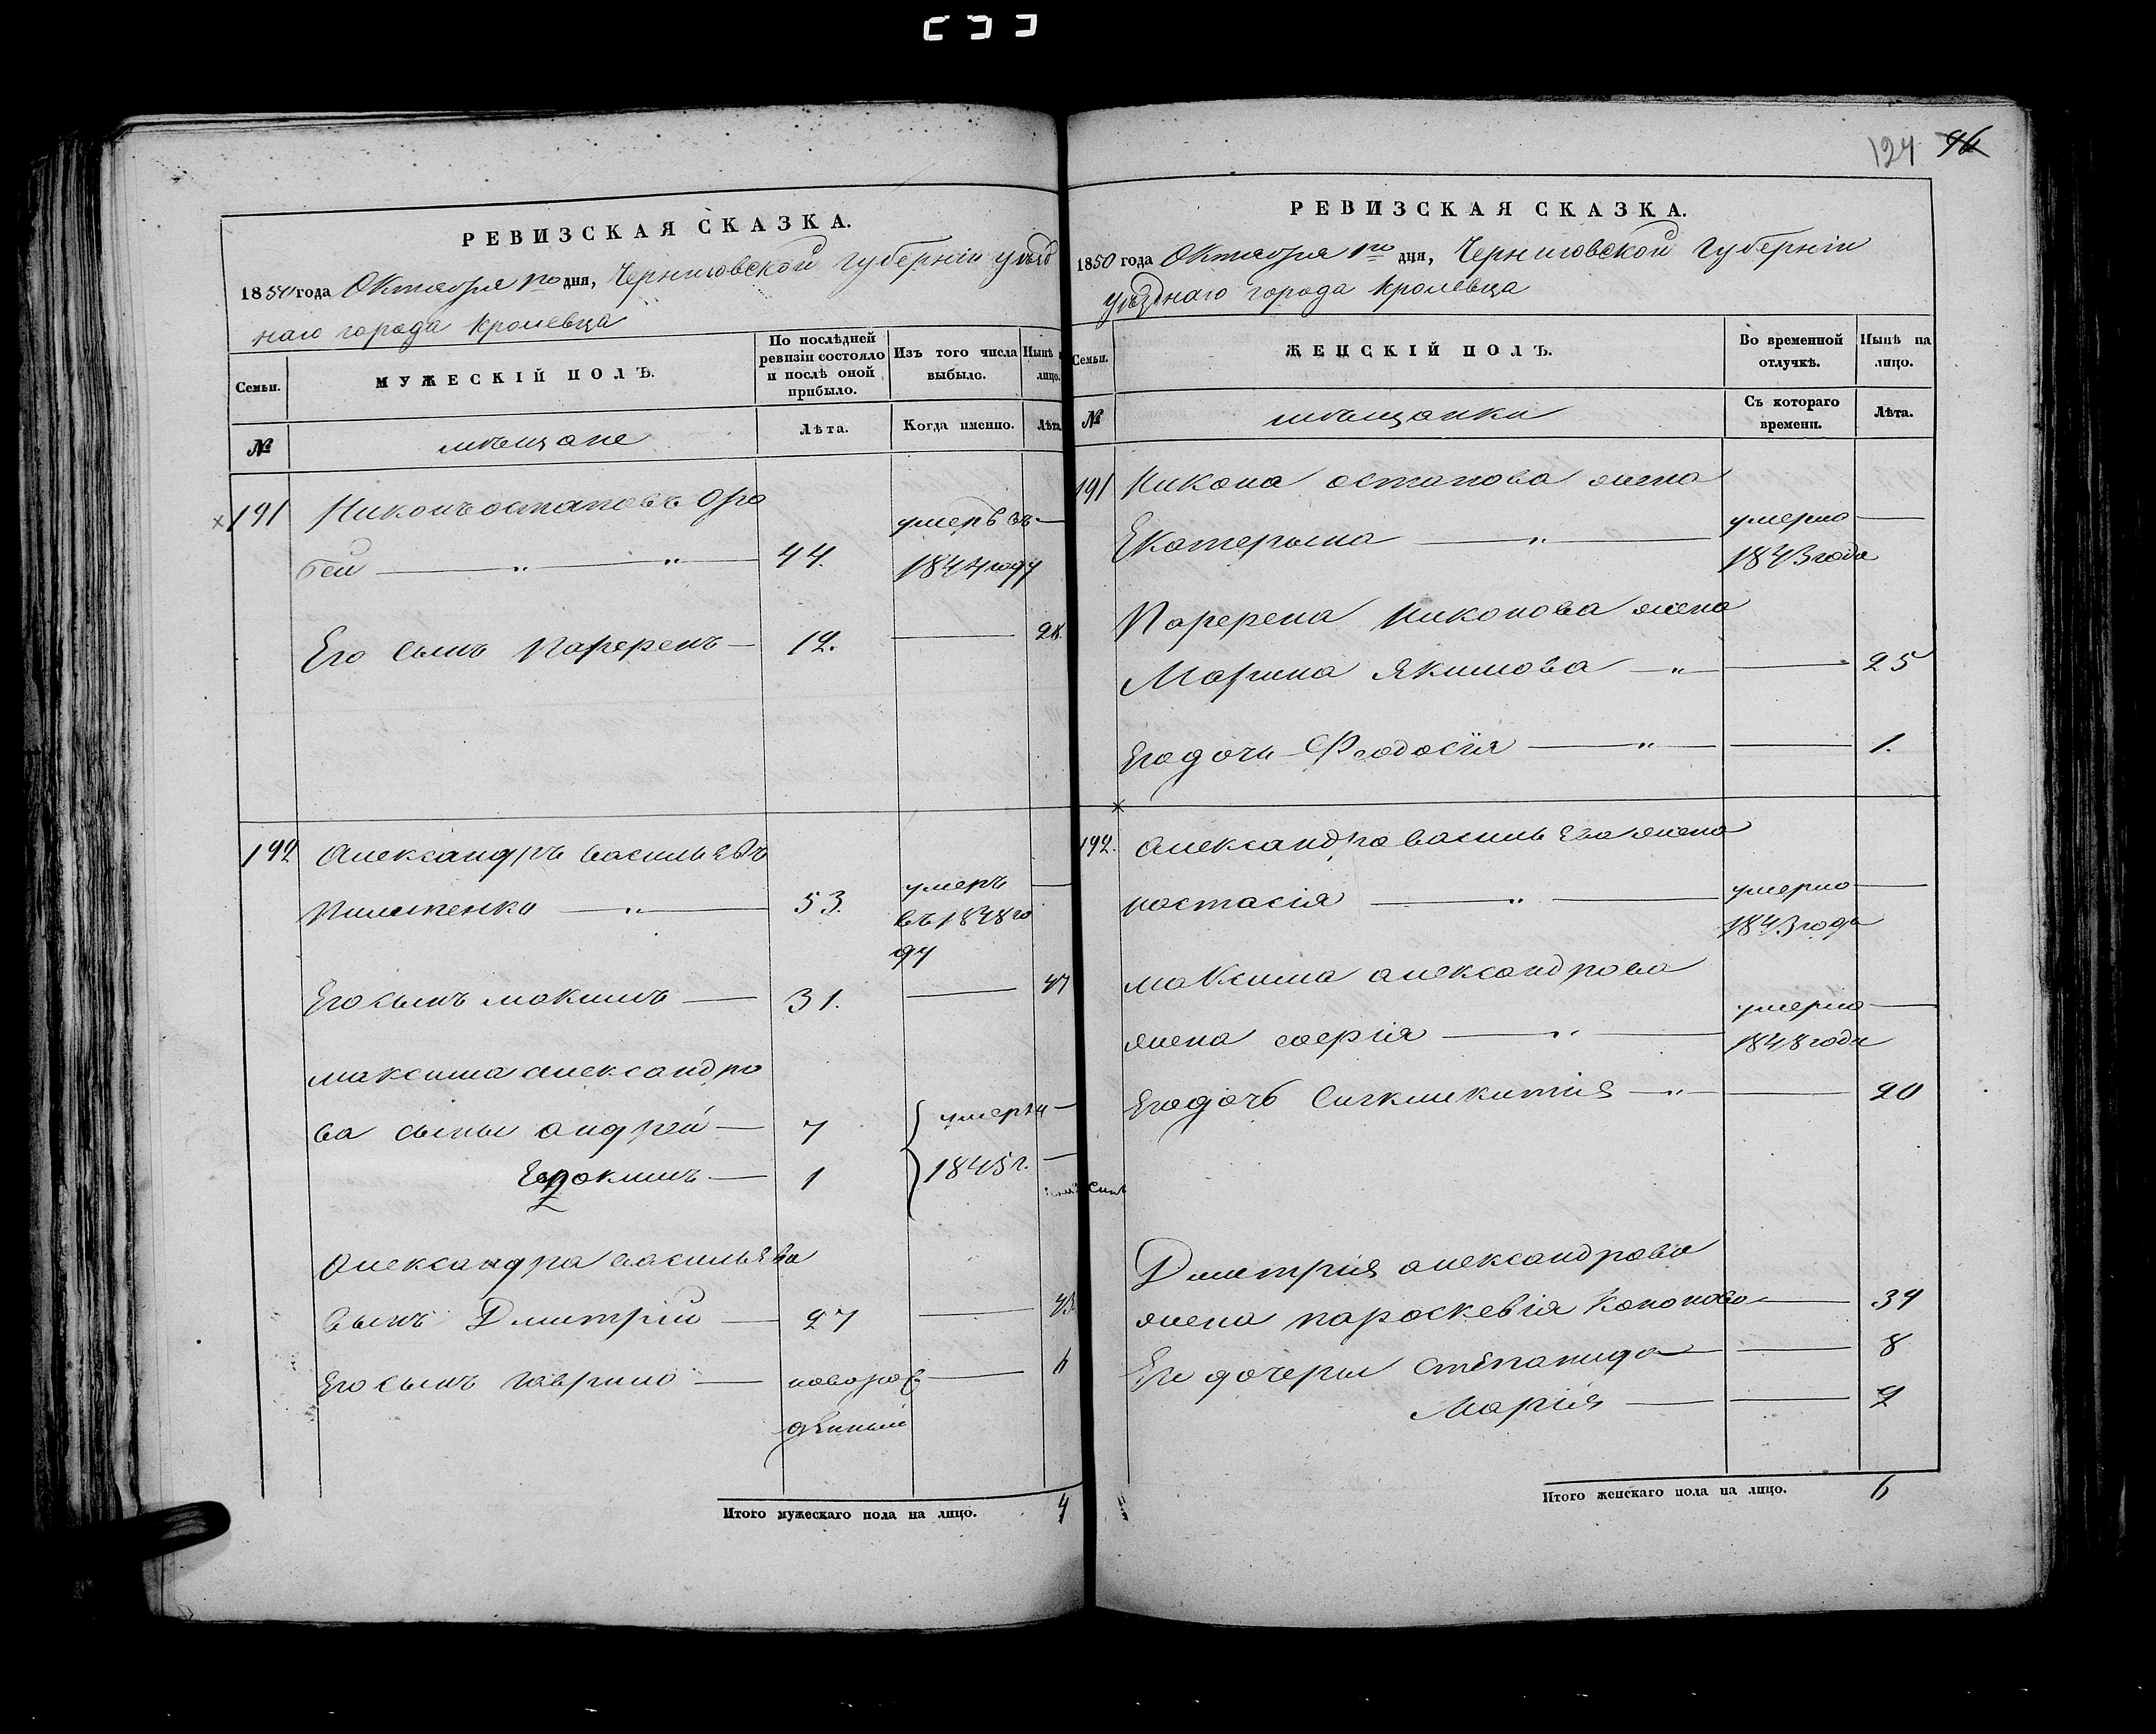 РЕВИЗСКАЯ СКАЗКА.
1850 года Октября 1го дня, Черниговской губерніи уѣзд
наго города Кролевца
Семьи.
МУЖЕСКІЙ ПОЛЪ.
По послѣдней
ревизіи состояло
и послѣ оной
прибыло.
Изъ того числа
выбыло.
Нынѣ
лицо.
№
мѣщане
Лѣта.
Когда именно.
Лѣта
191 Никонъ остаповъ
умеръ въ
44.
1844 году
Его сынъ Парфенъ 12. 28.
192 Александръ васильевъ
Пилипенко 53. умеръ
въ 1848 го
ду
Его сынъ макимъ 31. 47
максима александро
ва сыны андрей 7 умерли
Евдокимъ 1 1845 г.
Александра васильева
сынъ Дмитрій 27 43
Его сынъ гаврило новорож
дѣнный 6
Итого мужескаго пола на лицо. 4
124 96
РЕВИЗСКАЯ СКАЗКА.
1850 года Октября 1го дня, Черниговской губерніи
уѣзднаго города Кролевца
Семьи.
ЖЕНСКІЙ ПОЛЪ.
Во временной
отлучкѣ.
Нынѣ на
лицо.
№
мѣщанки
Съ котораго
времени.
Лѣта.
191 Никона остапова жена
Екатерина умерла
1843 года
Парфена Никонова жена
Марина Якимова 25
Его дочь Феодосія 1.
192. Александра василь ева жена
настасія умерла
1843 года
маКсима александрова
жена софія умерла
1848 года
Его дочь 20
Дмитрія александрова
жена параскевія Кононова 34
Его дочери степанида 8
Марія 2
Итого женскаго пола на лицо. 6